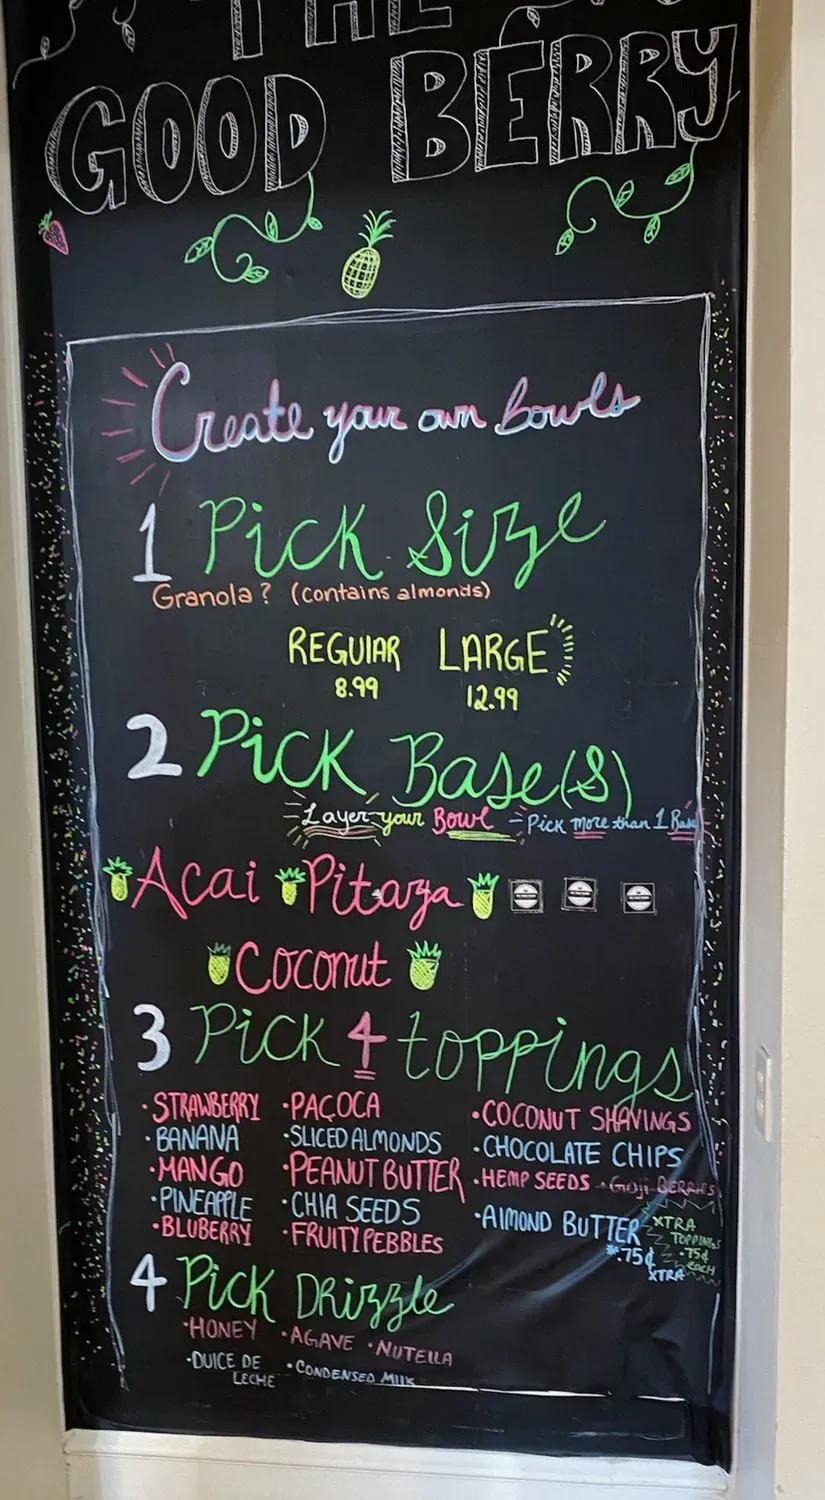 THE
GOOD BERRY
Create your own Bowls
1 Pick Size
Granola? (contains almonds)
REGULAR LARGE
8.99 12.99
2 Pick Base(s)
Layer your Bowl - Pick more than 1 Base
Acai Pitaya
Coconut
3 Pick 4 toppings
· STRAWBERRY · PAÇOCA · COCONUT SHAVINGS
· BANANA · SLICED ALMONDS · CHOCOLATE CHIPS
· MANGO · PEANUT BUTTER · HEMP SEEDS · GOJI BERRIES
· PINEAPPLE · CHIA SEEDS · ALMOND BUTTER
· BLUBERRY · FRUITY PEBBLES *.75¢ XTRA
XTRA TOPPINGS .75¢ EACH
4 Pick Drizzle
· HONEY · AGAVE · NUTELLA
· DULCE DE LECHE · CONDENSED MILK